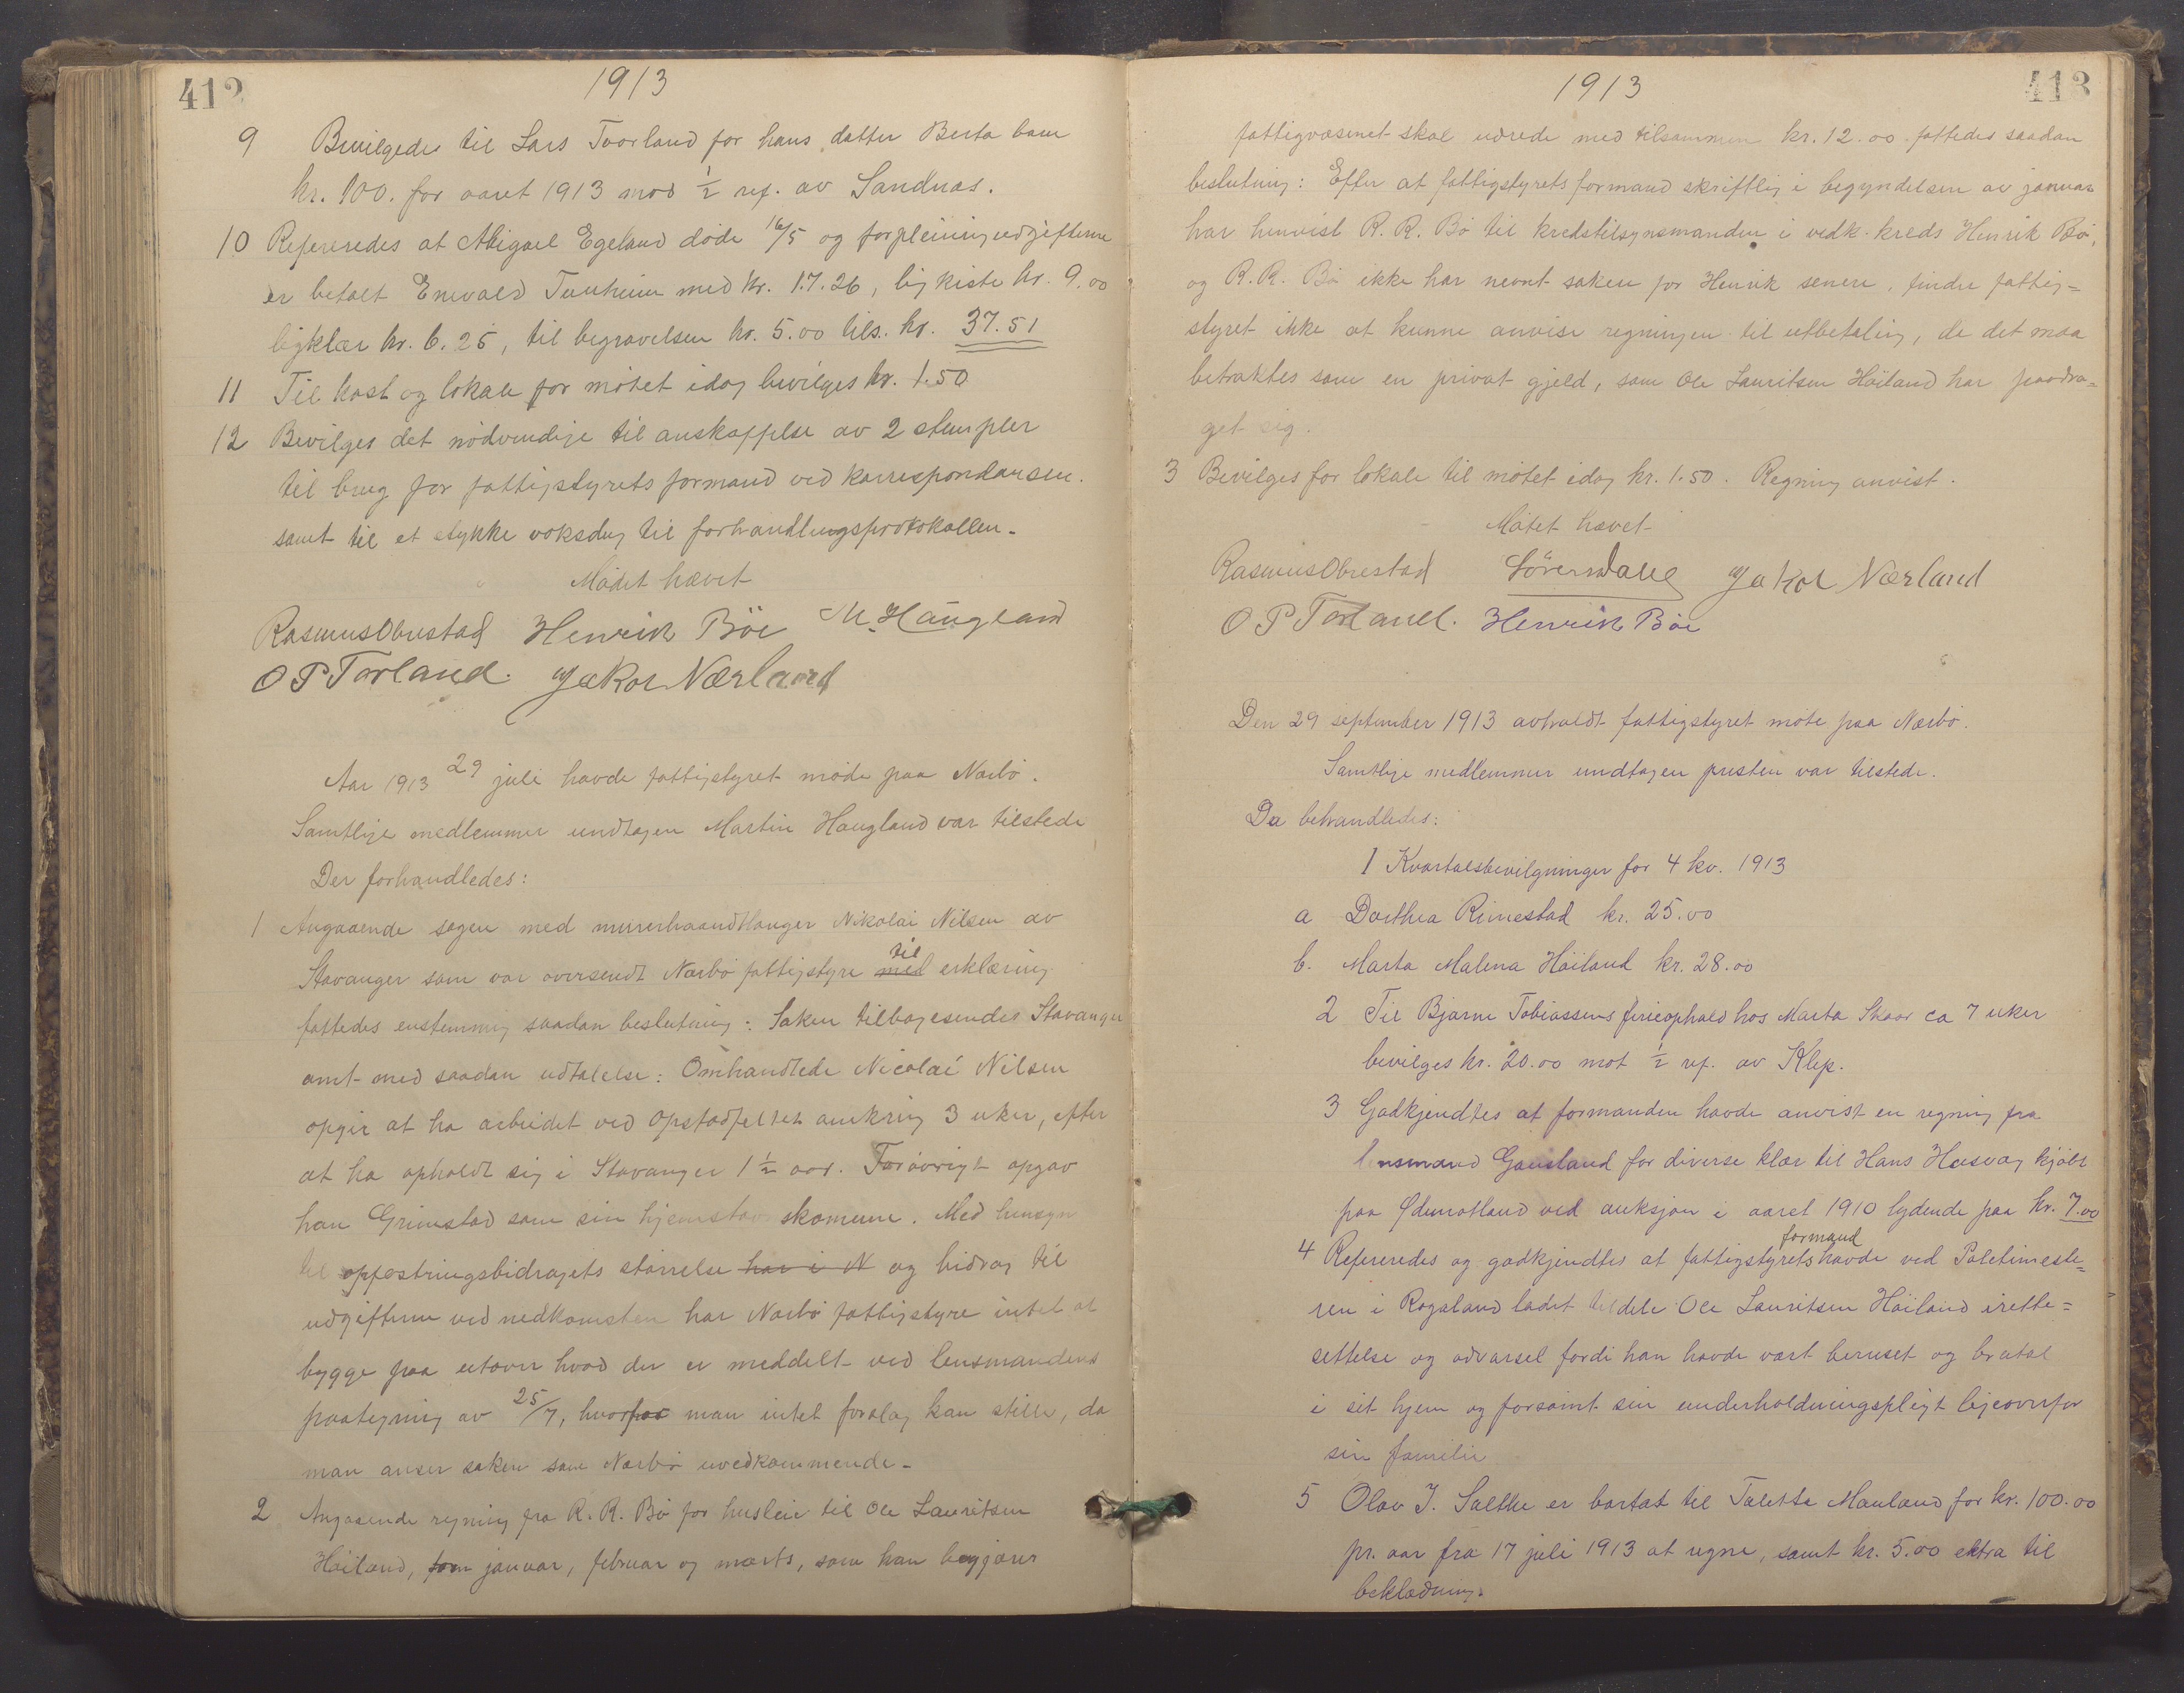 412
1913
9 Bevilgedes til Lars Torland for hans datter Berta barn
kr. 100. for aaret 1913 mod ½ ref. av Sandnæs.
10 Refereredes at Abigael Egeland døde 16/5 og forpleiningudgifterne
er betalt Enevald Tunheim med kr. 17.26, ligkiste kr. 9.00
ligklær kr. 6.25, til begravelsen kr. 5.00 tils. kr. 37.51
11 Til kost og lokale for møtet idag bevilges kr. 1.50
12 Bevilges det nødvendige til anskaffelse av 2 stempler
til brug for fattigstyrets formand ved korrespondansen.
samt til et stykke voksdug til forhandlingsprotokollen.
Mødet hævet
Rasmus Obrestad Henrik Böe M. Haugland
O P Torland. Jakob Nærland
Aar 1913 29 juli havde fattigstyret møde paa Nærbø.
Samtlige medlemmer undtagen Martin Haugland var tilstede
Der forhandledes:
1 Angaaende sagen med murerhaandtlanger Nikolai Nilsen av
Stavanger som var oversendt Nærbø fattigstyre med til erklæring
fattedes enstemmig saadan beslutning: Saken tilbagesendes Stavanger
amt med saadan udtalelse: Omhandlede Nicolai Nilsen
opgir at ha arbeidet ved Opstadfeltet omkring 3 uker, efter
at ha opholdt sig i Stavanger 1½ aar. Forøvrigt opgav
han Grimstad som sin hjemstavnskomune. Med hensyn
til opfostringsbidragets størrelse har i N og bidrag til
udgifterne ved nedkomsten har Nærbø fattigstyre intet at
bygge paa utover hvad der er meddelt ved lensmandens
paategning av 25/7, hvorfor man intet forslag kan stille, da
man anser saken som Nærbø uvedkommende.
2 Angaaende regning fra R. R. Bø for husleie til Ole Lauritsen
Høiland, for januar, februar og marts, som han begjærer
413
1913
fattigvæsenet skal udrede med tilsammen kr. 12.00. fattedes saadan
beslutning: Efter at fattigstyrets formand skriftlig i begyndelsen av januar
har henvist R. R. Bø til kredstilsynsmanden i vedk. kreds Henrik Bø,
og R. R. Bø ikke har nevnt saken for Henrik senere, finder fattig=
styret ikke at kunne anvise regningen til utbetaling, da det maa
betraktes som en privat gjeld, som Ole Lauritsen Høiland har paadra=
get sig.
3 Bevilges for lokale til møtet idag kr. 1.50. Regning anvist.
Møtet hævet
Rasmus Obrestad Sörensdalle Jakob Nærland
O P Torland. Henrik Böe
Den 29 september 1913 avholdt fattigstyret møte paa Nærbø.
Samtlige medlemmer undtagen presten var tilstede.
Da behandledes:
1 Kvartalsbevilgninger for 4 kv. 1913
a Dorthea Rimestad kr. 25.00
b. Marta Malena Høiland kr. 28.00
2 Til Bjarne Tobiassens ferieophold hos Marta Skaar ca 7 uker
bevilges kr. 20.00 mot ½ ref. av Klep.
3 Godkjendtes at formanden havde anvist en regning fra
lensmand Gausland for diverse klær til Hans Hæsvag kjøbt
paa Ødemotland ved auksjon i aaret 1910 lydende paa kr. 7.00
4 Refereredes og godkjendtes at fattigstyrets formand havde ved Politimeste=
ren i Rogaland ladet tildele Ole Lauritsen Høiland irette=
settelse og advarsel fordi han havde vært beruset og brutal
i sit hjem og forsømt sin underholdningspligt ligeoverfor
sin familie
5 Olav J. Salthe er bortsat til Taletta Mauland for kr. 100.00
pr. aar fra 17 juli 1913 at regne, samt kr. 5.00 ektra til
beklædning.